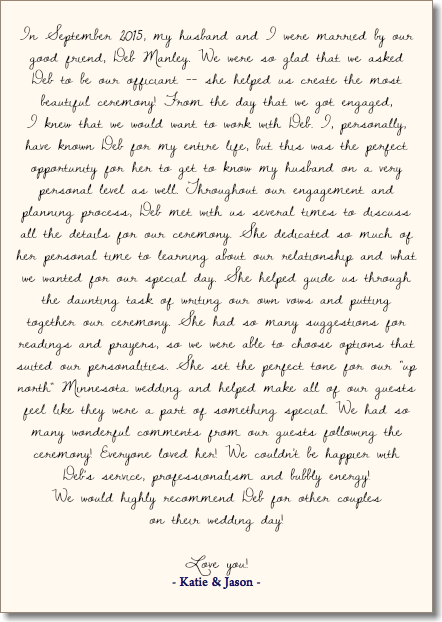 In September 2015, my husband and I were married by our
good friend, Deb Manley. We were so glad that we asked
Deb to be our officiant -- she helped us create the most
beautiful ceremony! From the day that we got engaged,
I knew that we would want to work with Deb. I, personally,
have known Deb for my entire life, but this was the perfect
opportunity for her to get to know my husband on a very
personal level as well. Throughout our engagement and
planning process, Deb met with us several times to discuss
all the details for our ceremony. She dedicated so much of
her personal time to learning about our relationship and what
we wanted for our special day. She helped guide us through
the daunting task of writing our own vows and putting
together our ceremony. She had so many suggestions for
readings and prayers, so we were able to choose options that
suited our personalities. She set the perfect tone for our "up
north" Minnesota wedding and helped make all of our guests
feel like they were a part of something special. We had so
many wonderful comments from our guests following the
ceremony! Everyone loved her! We couldn't be happier with
Deb's service, professionalism and bubbly energy!
We would highly recommend Deb for other couples
on their wedding day!
Love you!
- Katie & Jason -